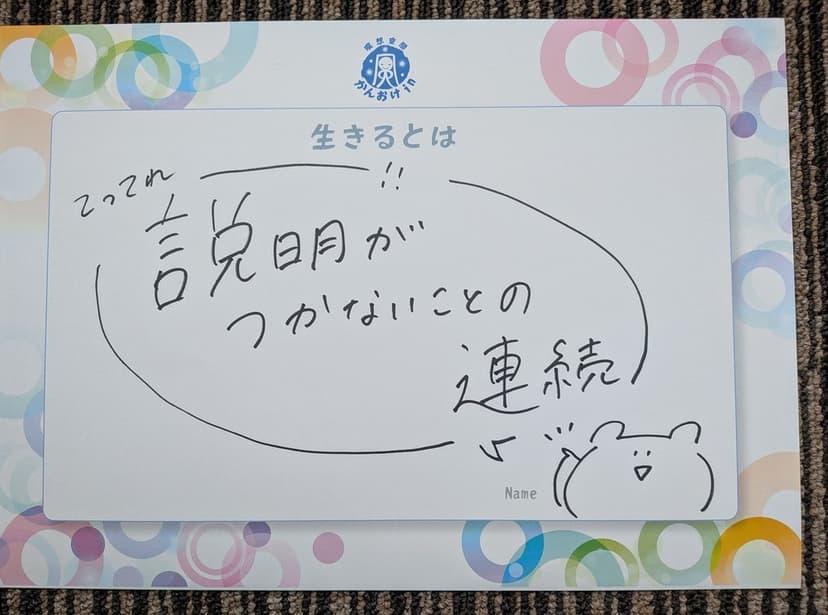 瞑想空間
かんおけin
生きるとは
てってれ
!!
説明が
つかないことの
連続
Name